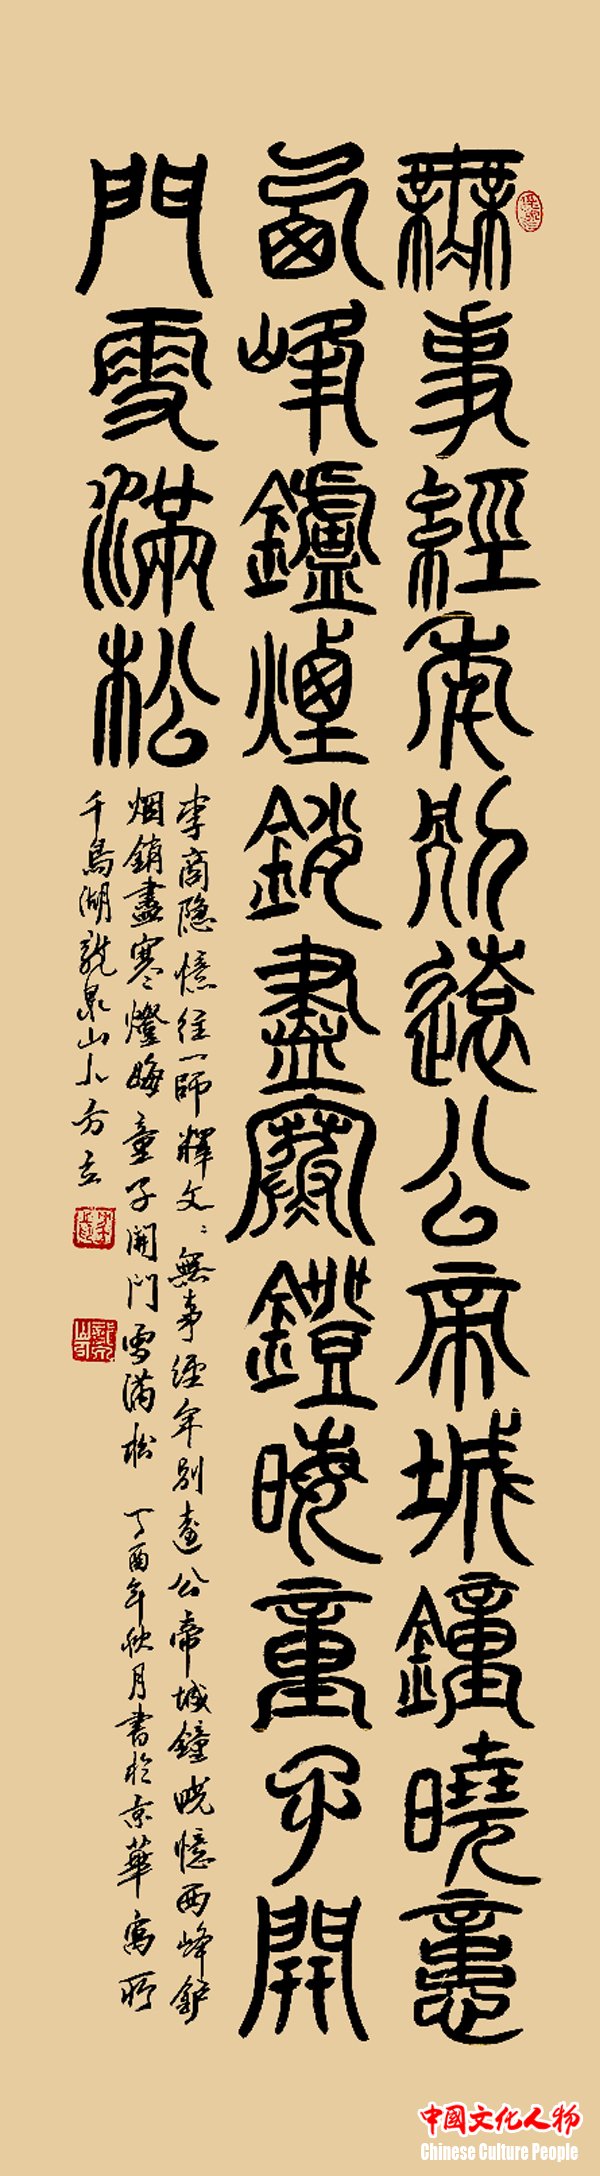 無事經年別遠公帝城鐘曉憶
西峰鑪煙銷盡寒鐙晦童子開
門雪滿松
李商隐憶住一師釋文：無事經年別遠公帝城鐘曉憶西峰鈩
烟銷盡寒燈晦童子開门雪满松 丁酉年秋月書於京華寓所
千鳥湖龍泉山人方立
中國文化人物
Chinese Culture People